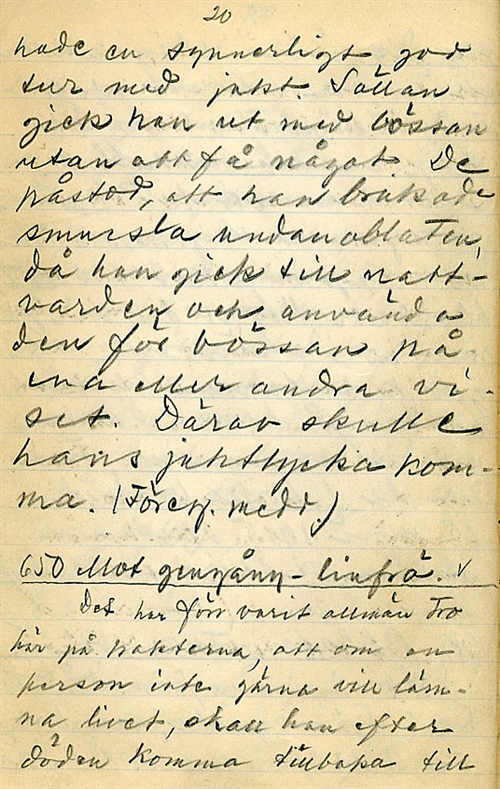 20
hade en synnerligt god
tur med jakt. Sällan
gick han ut med bössan
utan att få något. De
påstod, att han brukade
smussla undan oblaten,
då han gick till natt-
varden och använda
den för bössan på
ena eller andra vi-
set. Därav skulle
hans jaktlycka kom-
ma. (Föreg. medd.)
650 Mot gengång - linfrö. V
Det har förr varit allmän tro
här på trakterna, att om en
person inte gärna vill läm-
na livet, skall han efter
döden komma tillbaka till